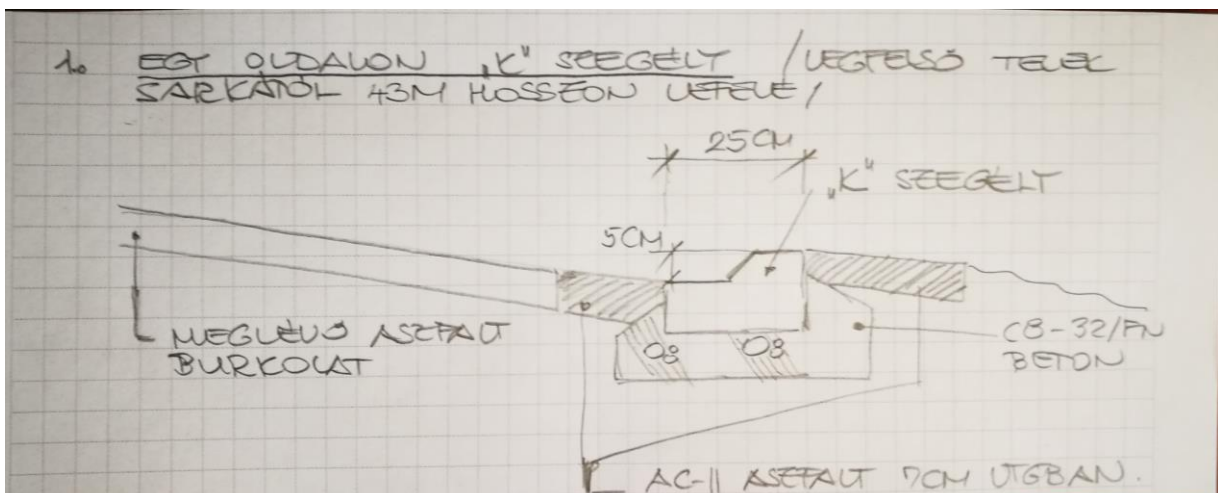 1. EGY OLDALON „K" SZEGÉLY /LEGFELSŐ TELEK
SARKÁTÓL 43M HOSSZON LEFELÉ/
25CM
„K" SZEGÉLY
5CM
MEGLÉVŐ ASZFALT
BURKOLAT
C8-32/FN
BETON
AC-11 ASZFALT 7CM VTGBAN.